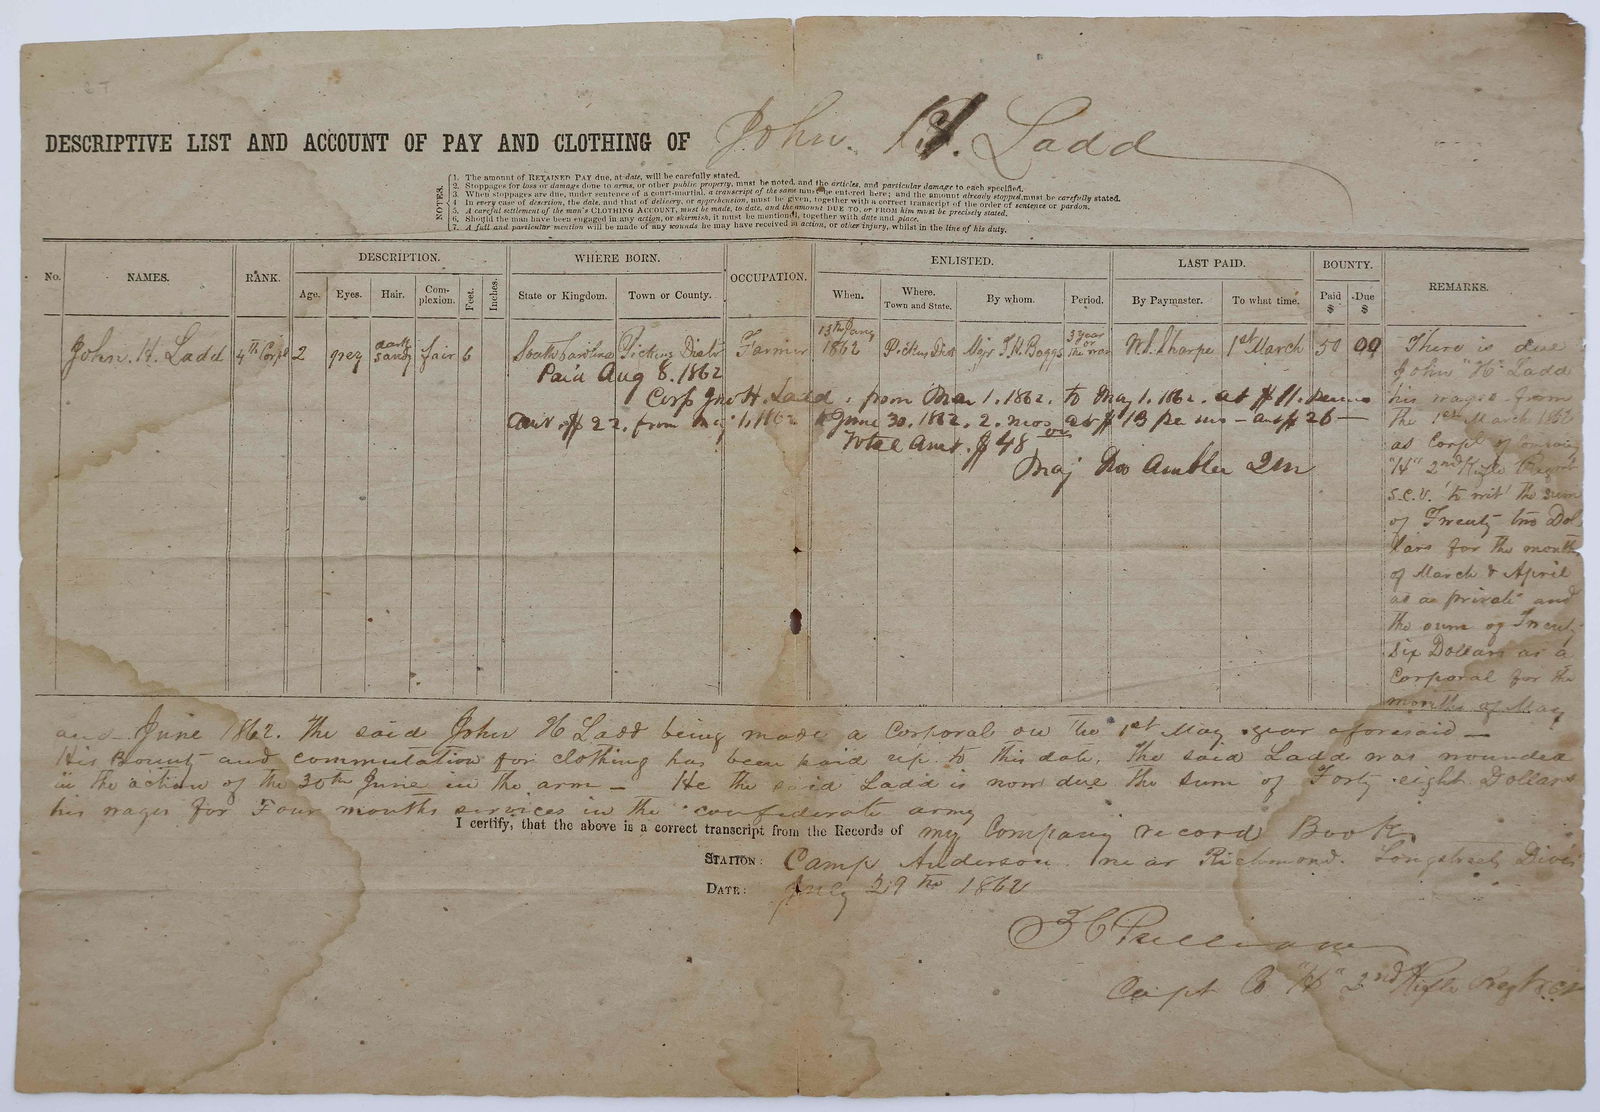 DESCRIPTIVE LIST AND ACCOUNT OF PAY AND CLOTHING OF John. H. Ladd
NOTES.
1. The amount of RETAINED PAY due, at date, will be carefully stated.
2. Stoppages for loss or damage done to arms, or other public property, must be noted, and the articles, and particular damage to each specified.
3. When stoppages are due, under sentence of a court-martial, a transcript of the same must be entered here; and the amount already stopped must be carefully stated.
4. In every case of desertion, the date, and that of delivery, or apprehension, must be given, together with a correct transcript of the order of sentence or pardon.
5. A careful settlement of the man's CLOTHING ACCOUNT, must be made, to date, and the amount DUE TO, or FROM him must be precisely stated.
6. Should the man have been engaged in any action, or skirmish, it must be mentioned, together with date and place.
7. A full and particular mention will be made of any wounds he may have received in action, or other injury, whilst in the line of his duty.
No. NAMES. RANK. DESCRIPTION. WHERE BORN. OCCUPATION. ENLISTED. LAST PAID. BOUNTY. REMARKS.
Age. Eyes. Hair. Complexion. Feet. Inches. State or Kingdom. Town or County. When. Where. Town and State. By whom. Period. By Paymaster. To what time. Paid $ Due $
John. H. Ladd 4th Corpl 2 grey dark sandy fair 6 South Carolina Pickens Distr Farmer 13th Jany 1862 Pickens Dist Majr T. H. Boggs 3 year or the war W. S. Sharpe 1st March 50 00
Paid Aug 8. 1862
Corp Jno H. Ladd, from Mar 1. 1862. to May 1. 1862. at $11. per mo
Amt $22. from May 1, 1862 to June 30. 1862. 2. mos at $13 pe mo - amt $26 -
Total Amt. $48
Maj Jno Ambler QM
There is due
John "H" Ladd
his wages from
the 1st March 1862
as Corpl of Company
"H" 2nd Rifle Regmt
S.C.V. 'to wit' the sum
of Twenty two Dol
lars for the months
of March & April
as a private and
the sum of Twenty
six Dollars as a
Corporal for the
months of May
and June 1862. The said John H Ladd being made a Corporal on the 1st May year aforesaid -
His Bounty and commutation for clothing has been paid up to this date. The said Ladd was wounded
in the action of the 30th June in the arm - He the said Ladd is now due the sum of Forty eight Dollars
his wages for Four months services in the confederate army
I certify, that the above is a correct transcript from the Records of my Company record Book.
STATION: Camp Anderson near Richmond. Longstreets Divis
DATE: July 29th 1862
Capt Co "H" 2nd Rifle Regt